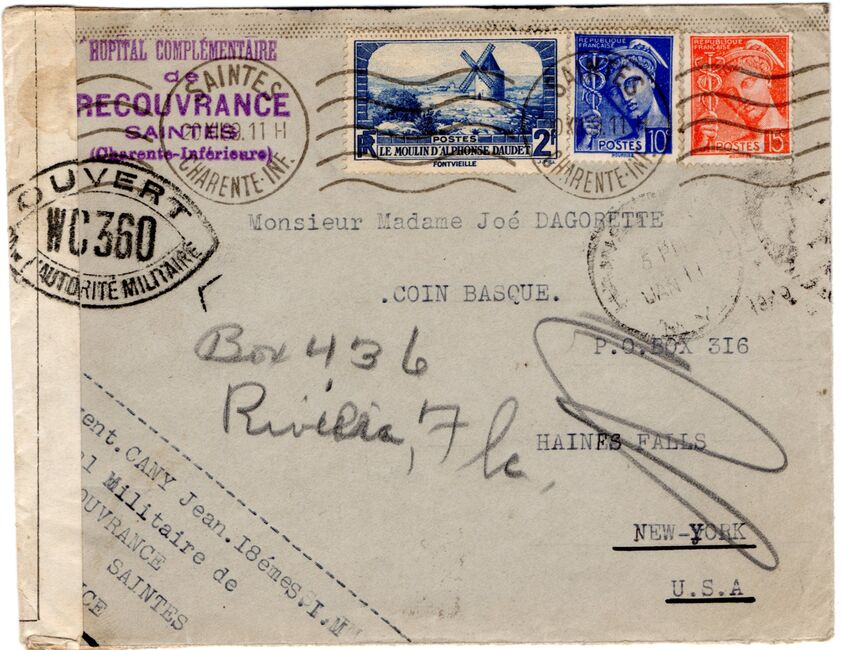 HOPITAL COMPLÉMENTAIRE
de
RECOUVRANCE
SAINTES
(Charente-Inférieure)
SAINTES
11 H
CHARENTE-INF.
POSTES
2F
LE MOULIN D'ALPHONSE DAUDET
FONTVIEILLE
SAINTES
11 H
CHARENTE-INF.
RÉPUBLIQUE
FRANÇAISE
POSTES 10c
RÉPUBLIQUE
FRANÇAISE
POSTES 15c
OUVERT
WC360
L'AUTORITÉ MILITAIRE
Monsieur Madame Joé DAGORETTE
.COIN BASQUE.
P.O.BOX 316
HAINES FALLS
NEW-YORK
U.S.A
5 PM
JAN 11
N.Y.
Box 436
Riviera, Fla,
ent.CANY Jean.I8émeS.I.M
al Militaire de
OUVRANCE
SAINTES
CE